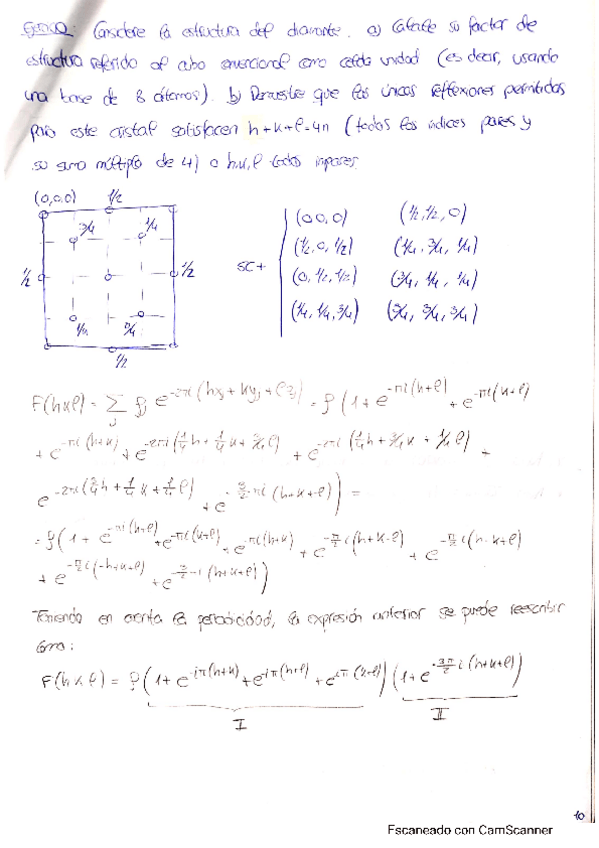 Ejercicio: Considere la estructura del diamante. a) Calcule su factor de
estructura referido al cubo convencional como celda unidad (es decir, usando
una base de 8 átomos). b) Demuestre que las únicas reflexiones permitidas
para este cristal satisfacen h+k+l=4n (todos los índices pares y
su suma múltiplo de 4) o h,k,l todos impares.
(0,0,0) 1/2
3/4 1/4
1/2 1/2
1/4 3/4
1/2
SC+
(0 0, 0) (1/2, 1/2, 0)
(1/2, 0, 1/2) (1/4, 3/4, 1/4)
(0, 1/2, 1/2) (3/4, 1/4, 1/4)
(1/4, 1/4, 3/4) (3/4, 3/4, 3/4)
F(hkl) = Σ_j f_j e^{-2πi(hx_j + ky_j + lz_j)} = f (1 + e^{-πi(h+l)} + e^{-πi(k+l)}
+ e^{-πi(h+k)} + e^{-2πi(1/4h + 1/4k + 3/4l)} + e^{-2πi(1/4h + 3/4k + 1/4l)} +
e^{-2πi(3/4h + 1/4k + 1/4l)} + e^{-3/2πi(h+k+l)}) =
= f(1 + e^{-πi(h+l)} + e^{-πi(k+l)} + e^{-πi(h+k)} + e^{-π/2 i(h+k-l)} + e^{-π/2 i(h-k+l)}
+ e^{-π/2 i(-h+k+l)} + e^{-3/2 πi(h+k+l)})
Teniendo en cuenta la periodicidad, la expresión anterior se puede reescribir
como:
F(hkl) = f (1 + e^{-iπ(h+k)} + e^{-iπ(h+l)} + e^{iπ(k+l)}) (1 + e^{-3π/2 i(h+k+l)})
I II
10
Escaneado con CamScanner